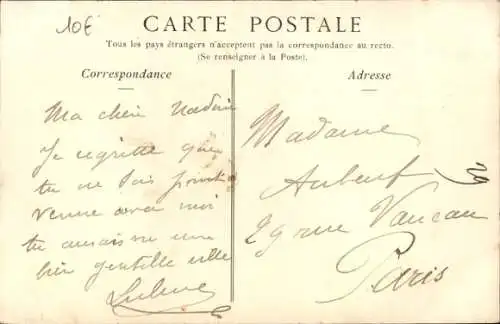 10€
CARTE POSTALE
Tous les pays étrangers n'acceptent pas la correspondance au recto.
(Se renseigner à la Poste).
Correspondance
Ma chère
Je regrette que
tu ne sois point
venue avec moi
tu aurais vu une
bien gentille ville
Adresse
Madame
Aubeuf
29 rue Vaneau
Paris